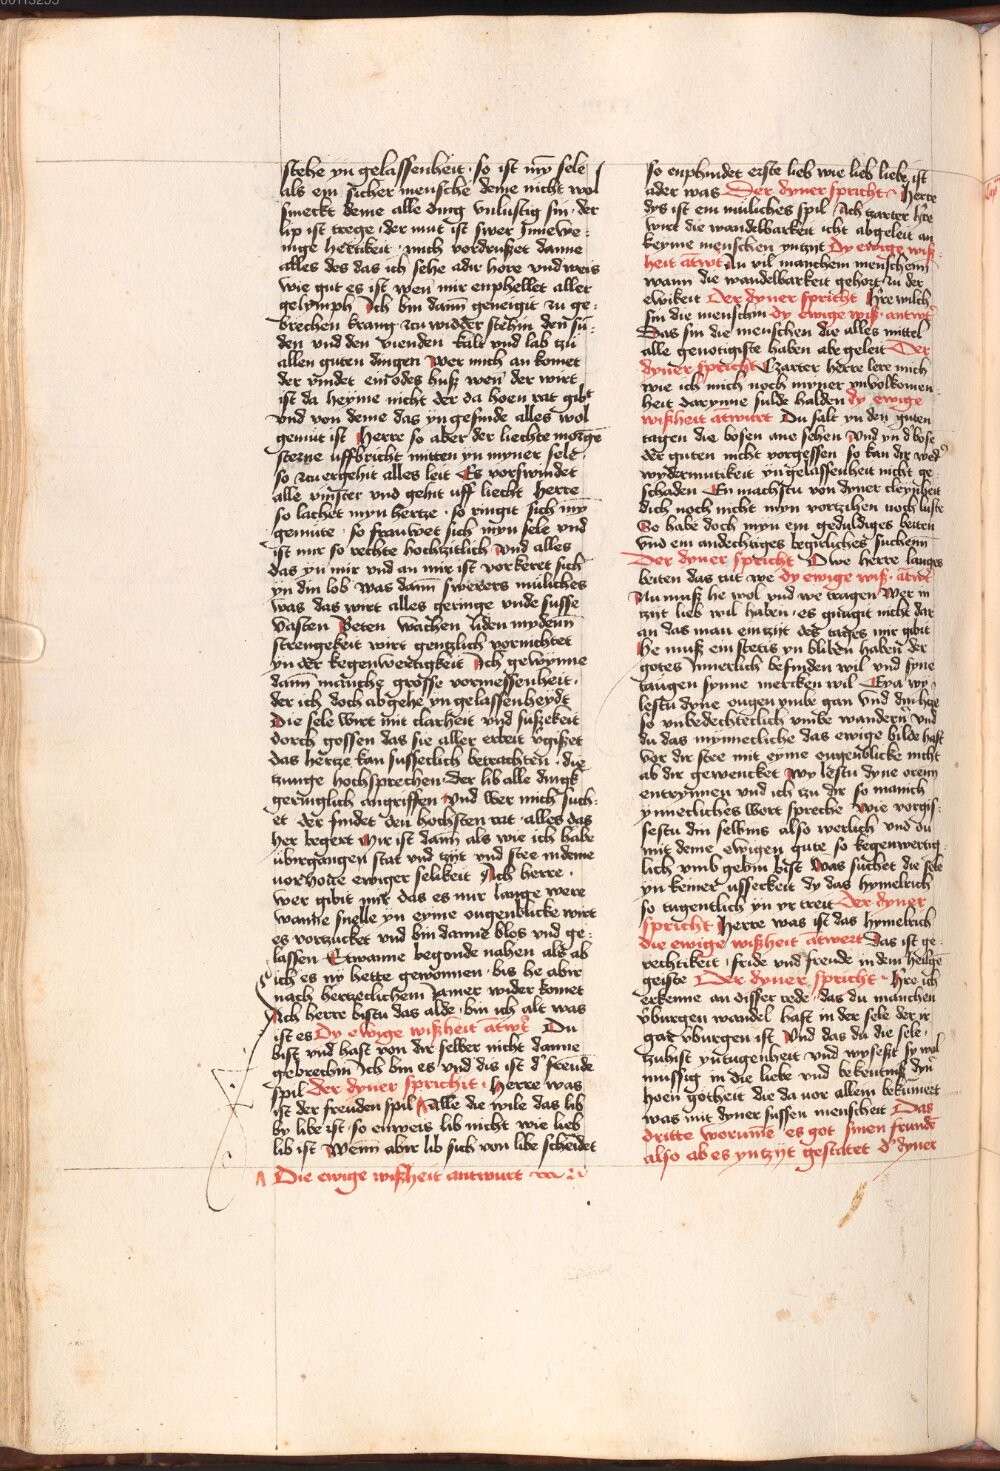 stehe yn gelassenheit · so ist my̅ sele
als ein sicher mensche deme nicht wol
smeckt deme alle ding vnlustig sin · der
lip ist trege · der mut ist swer Jnnewe-
nige hertikeit · mich vordrußet danne
alles des das ich sehe adir hore vnd weis
wie gut es ist wen mir enphellet aller
gelymph Ich bin dann̅ geneigit zu ge-
brechen krang zcu widder stehin den su̅-
den vnd den vienden kalt vnd lab tzu
allen guten dingen wer mich an komet
der vindet ein odes huß wen̅ der wirt
ist da heyme nicht der da hoen rat gibt
vnd von deme das yn gesinde alles wol
gemut ist Herre so aber der liechte morge
sterne uffbricht mitten yn myner sele ·
so zcuergehit alles leit Es vorswindet
alle vinster vnd gehit uff liecht Herre
so lachet myn hertze · so ringit sich my̅
gemute · so frauwet sich myn sele vnd
ist mir so rechte hochzitlich vnd alles
das yn mir vnd an mir ist vorkeret sich
yn din lob was dann̅ swerers muliches
was das wirt alles geringe vnde susse
vasten Beten wachen liden mydenn
strengekeit wirt gentzlich vornichtet
yn der kegenwertigkeit Ich gewynne
dann̅ manche grosse vormessenheit ·
der ich doch abgehe yn gelassenheydt
Die sele wirt mit clarheit vnd sußekeit
dorch gossen das sie aller erbeit v̓gißet
das hertze kan susseclich betrachten · die
tzunge hochsprechen · Der lib alle dingk
geringlich angriffen vnd wer mich such-
et der findet den hochsten rat · alles das
her begert Mir ist dann̅ als wie ich habe
ubirgangen stat vnd tzyt vnd stee in deme
uorhoue ewiger selikeit Ach herre ·
wer gibit mir das es mir lange were
wanne snelle yn eyme ougenblicke wirt
es vorzucket vnd bin danne blos vnd ge-
lassen · Etwanne begonde nahen als ab
ich es ny hette gewonnen · bis he abir
nach hertzeclichem Jamer wider komet
Ach herre bistu das alde · bin ich alt was
ist es Dy ewige wißheit a̅twt᷑ Du
bist vnd hast von dir selber nicht danne
gebrechin Ich bin es vnd dis ist d᷑ freude
spil Der dyner sprichit · Herre was
ist der freuden spil Alle die wile das lib
by libe ist · so enweis lib nicht wie lieb
lib ist Wenn abir lib sich von libe scheidet
Die ewige wißheit antwurt
so enphindet erste lieb wie lieb liebe ist
ader was Der dyner spricht Herre
dys ist ein muliches spil Ach tzarter h̅re
wirt die wandelbarkeit icht abgeleit an
keyme menschen yntzyt Dy ewige wiß-
heit a̅twt An vil manchem menschenn
wann die wandelbarkeit gehort zu der
ewikeit Der dyner spricht H̅re wilch
sin die menschin dy ewige wiß · antwt᷑
Das sin die menschen die alles mittel
alle genotigiste haben abe geleit Der
dyner spricht Czarter herre lere mich
wie ich mich noch myner vnvolkomen-
heit darynne sulde halden dy ewige
wißheit a̅twurt Du salt yn den guten
tagen die bosen ane sehen vnd yn d᷑ bose
der guten nicht vorgessen so kan dir wed᷑
wydermutikeit yn gelassenheit nicht ge-
schaden En machstu von dyner cleynheit
dich noch nicht myn vortzihen noch luste
So habe doch myn ein geduldiges beiten
vnd ein andechtiges begirliches suchenn
Der dyner spricht Owe herre langes
beiten das tut we dy ewige wiß · a̅twt᷑
Nu muß he wol vnd we tragen wer in
tzyt lieb wil haben · es gnugit nicht dar
an das man ein tzyt des tages mir gibit
He muß ein stetis yn bliben haben der
gotes innerlich befinden wil vnd syne
taugen synne mercken wil Eya wy
lestu dyne ougen vmbe gan vnd din h̅tze
so vnbedechteclich vmbe wandern vnd
du das mynnecliche das ewige bilde hast
vor dir stee mit eyme ougenblicke nicht
ab dir gewencket wy lestu dyne orenn
entrynnen vnd ich tzu dir so manich
ynnecliches wort spreche wie vorgis-
sestu din selbins also werlich vnd du
mit deme ewigen gute so kegenwertig-
lich vmb gebin bist was suchet die sele
yn keiner usseckeit dy das hymelrich
so tugentlich yn yr treit Der dyner
spricht Herre was ist das hymelrich
die ewige wißheit a̅twert Das ist ge-
rechtikeit · fride vnd freude in dem heilige̅
geiste Der dyner spricht · H̅re ich
erkenne an disser rede · das du manchen
v̓burgen wandel hast in der sele der ir
gar v̓burgen ist Vnd das du die sele ·
tzuhist yn tugenheit vnd wysest sy wol
mussig in die liebe vnd bekentniß dyn᷑
hoen gotheit die da uor allein bekumert
was mit dyner sussen menscheit Das
dritte worumme es got sinen frunde̅
also ab es yntzyt gestatet d᷑ dyner